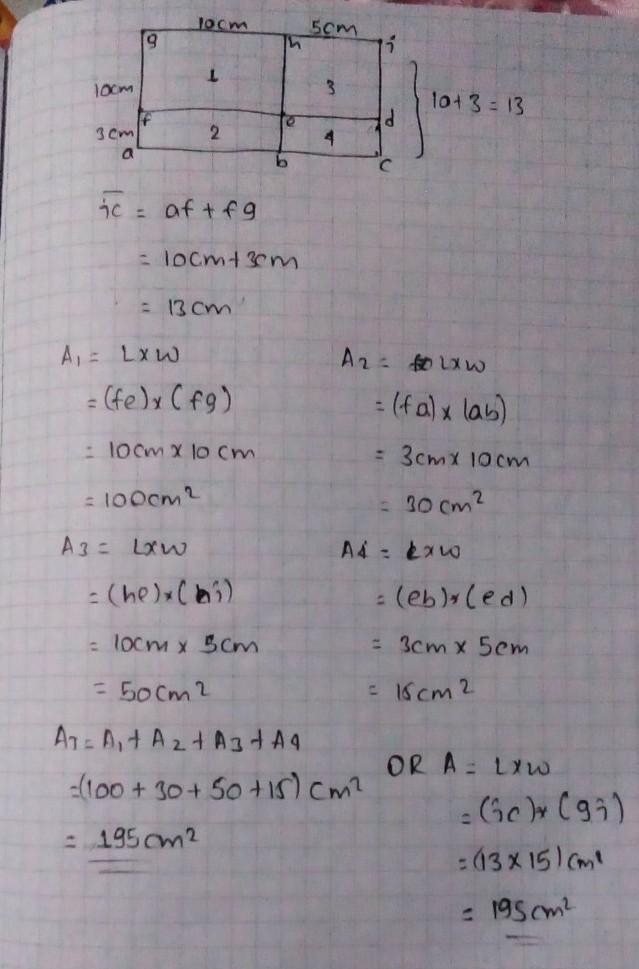 10cm 5cm
g h i
10cm 1 3
10+3 = 13
f e d
3cm 2 4
a b c
ic = af + fg
= 10cm+3cm
= 13cm
A1 = L×W
= (fe)×(fg)
= 10cm × 10cm
= 100cm2
A2 = L×W
= (fa)×(ab)
= 3cm × 10cm
= 30cm2
A3 = L×W
= (he)×(hi)
= 10cm × 5cm
= 50cm2
A4 = L×W
= (eb)×(ed)
= 3cm × 5cm
= 15cm2
AT = A1 + A2 + A3 + A4
=(100 + 30 + 50 +15) cm2
= 195cm2
OR A = L×W
= (ic)×(gi)
= (13×15)cm2
= 195cm2